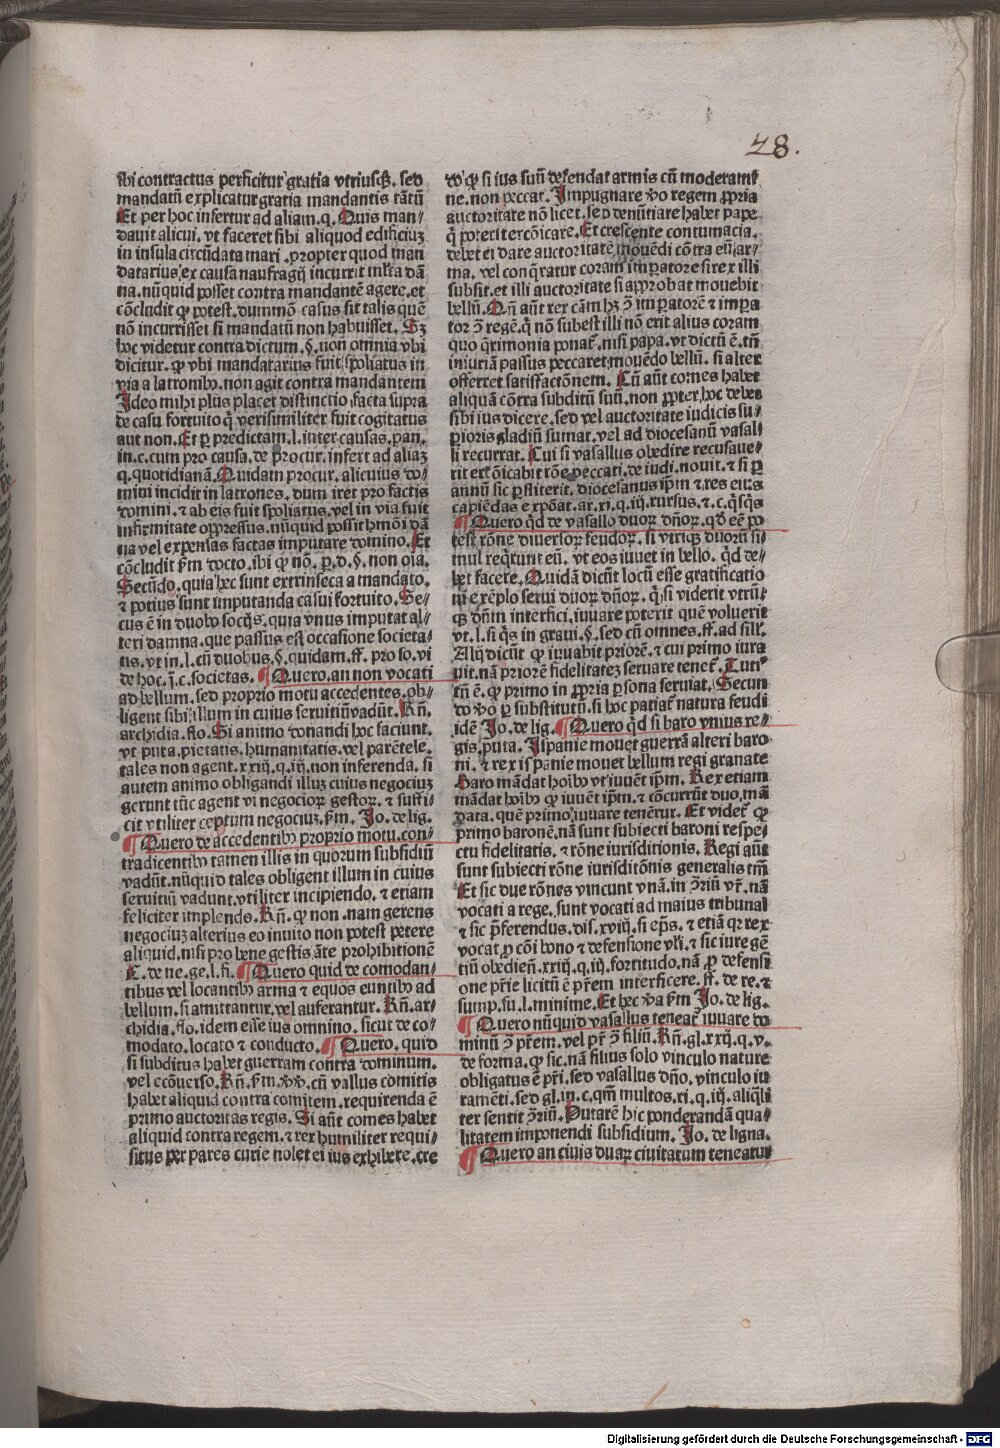 28.
ibi contractus perficitur gratia vtriusqȝ. sed
mandatū explicatur gratia mandantis tātū
Et per hoc insertur ad aliam .q. Quis man/
dauit alicui. vt faceret sibi aliquod edificiuȝ
in insula circūdata mari. propter quod man
datarius ex causa naufragij incurrit mlta dā
na. nūquid posset contra mandantē agere. et
cōcludit ꝙ potest. dummō casus sit talis quē
nō incurrisset si mandatū non habuisset. Sȝ
hoc videtur contra dictum .§. non omnia vbi
dicitur. ꝙ vbi mandatarius fuit spoliatus in
via a latronibꝰ. non agit contra mandantem
Ideo mihi plus placet distinctio facta supra
de casu fortuito q̄ verisimiliter fuit cogitatus
aut non. Et ꝑ predictam .l. inter causas. pan.
in .c. cum pro causa. de procur. infert ad aliaȝ
q. quotidianā. Quidam procur. alicuius do/
mini incidit in latrones. dum iret pro factis
domini. ⁊ ab eis fuit spoliatus. vel in via fuit
infirmitate oppressus. nūquid possit hmōi dā
na vel expensas factas imputare domino. Et
cōcludit ẜm docto. ibi ꝙ nō. ꝑ .d. §. non oīa.
Secūdo. quia hec sunt extrinseca a mandato.
⁊ potius sunt imputanda casui fortuito. Se/
cus ē in duobꝰ socijs. quia vnus imputat al/
teri damna. que passus est occasione societa/
tis. vt in .l. cū duobus. §. quidam. ff. pro so. vi
de hoc .j. c. societas. ¶ Quero. an non vocati
ad bellum. sed proprio motu accedentes. ob/
ligent sibi illum in cuius seruitiū vadūt. Rn̄.
archidia. flo. Si animo donandi hoc faciunt.
vt puta. pietatis. humanitatis. vel parētele.
tales non agent. xxiij. q. iij. non inferenda. si
autem animo obligandi illuȝ cuius negociuȝ
gerunt tūc agent vi negocioꝝ gestoꝝ. ⁊ suffi/
cit vtiliter ceptum negociuȝ. ẜm. Jo. de lig.
¶ Quero de accedentibꝰ proprio motu. con/
tradicentibꝰ tamen illis in quorum subsidiū
vadūt. nūquid tales obligent illum in cuius
seruitiū vadunt. vtiliter incipiendo. ⁊ etiam
feliciter implendo. Rn̄. ꝙ non. nam gerens
negociuȝ alterius eo inuito non potest petere
aliquid. nisi pro bene gestis āte prohibitionē
C. de ne. ge. l. fi. ¶ Quero quid de comodan/
tibus vel locantibꝰ arma ⁊ equos euntibꝰ ad
bellum. si amittantur. vel auferantur. Rn̄. ar/
chidia. flo. idem esse ius omnino. sicut de co/
modato. locato ⁊ conducto. ¶ Quero. quid
si subditus habet guerram contra dominum.
vel ecōuerso. Rn̄. ẜm
habet aliquid contra comitem. requirenda ē
primo auctoritas regis. Si aūt comes habet
aliquid contra regem. ⁊ rex humiliter requi/
situs per pares curie nolet ei ius exhibere. cre
do ꝙ si ius suū defendat armis cū moderami
ne. non peccat. Impugnare ꝟo regem ꝓpria
auctoritate nō licet. sed denūtiare habet pape
q̄ poterit excōicare. Et crescente contumacia.
debet ei dare auctoritatē mouēdi cōtra eū ar/
ma. vel conq̄ratur coram imꝑatore si rex illi
subsit. et illi auctoritate si approbat mouebit
bellū. Qn̄ aūt rex cām hȝ ꝯ imꝑatorē ⁊ impa
tor ꝯ regē. q̄ nō subest illi nō erit alius coram
quo q̄rimonia ponat̄. nisi papa. vt dictū ē. tn̄
iniuriā passus peccaret mouēdo bellū. si alter
offerret satisfactōnem. Cū aūt comes habet
aliquā cōtra subditū suū. non ꝓpter hoc debet
sibi ius dicere. sed vel auctoritate iudicis su/
perioris gladiū sumat. vel ad diocesanū vasal/
li recurrat. Cui si vasallus obedire recusaue/
rit excōicabit rōe peccati. de iudi. nouit. ⁊ si ꝑ
annū sic ꝑstiterit. diocesanus ip̄m ⁊ res eius
capiēdas expōat. ar. xi. q. iij. rursus. ⁊ .c. q̄sq̄s
¶ Quero q̄d de vasallo duoꝝ dn̄oꝝ. qd̄ eē po
test rōne diuersoꝝ feudoꝝ. si vtriqꝫ duorū si/
mul req̄runt eū. vt eos iuuet in bello. q̄d de/
bet facere. Quidā dicūt locū esse gratificatio
ni exēplo serui duoꝝ dn̄oꝝ. q̄ si viderit vtrū/
qꝫ dn̄m interfici. iuuare poterit quē voluerit
vt .l. si q̄s in graui. §. sed cū omnes. ff. ad sill.
Alij dicūt ꝙ iuuabit priorē. ⁊ cui primo iura
uit. nā priorē fidelitateȝ seruare tenet̄. Tuti
tn̄ ē. ꝙ primo in ꝓpria ꝑsona seruiat. Secun
do ꝟo ꝑ substitutū. si hoc patiat̄ natura feudi
idē Jo. de lig. ¶ Quero q̄d si baro vnius re/
gis. puta. Ispanie mouet guerrā alteri baro
ni. ⁊ rex ispanie mouet bellum regi granate
Baro mādat hoībꝰ vt iuuēt ip̄m. Rex etiam
mādat hoībꝰ ꝙ iuuēt ip̄m. ⁊ cōcurrūt duo. mā
data. quē primo iuuare tenētur. Et videt̄ ꝙ
primo baronē. nā sunt subiecti baroni respe/
ctu fidelitatis. ⁊ rōne iurisditionis. Regi aūt
sunt subiecti rōne iurisditōnis generalis tm̄
Et sic due rōnes vincunt vnā. in ꝯriū vr̄. nā
vocati a rege. sunt vocati ad maius tribunal
⁊ sic p̄ferendus. dis. xviij. si ep̄s. ⁊ etiā qꝛ rex
vocat ꝓ cōi bono ⁊ defensione ⁊ sic iure gē
tiū obedien̄. xxiij. q. iij. fortitudo. nā ꝓ defensi
one pr̄ie licitū ē pr̄em interficere. ff. de re. ⁊
sump. fu. l. minime. Et hec ꝟa ẜm Jo. de lig.
¶ Quero nūquid vasallus teneat̄ iuuare do
minū ꝯ pr̄em. vel pr̄ ꝯ filiū. Rn̄. gl. xxij. q. v.
de forma. ꝙ sic. nā filius solo vinculo nature
obligatus ē pr̄i. sed vasallus dn̄o. vinculo iu
ramēti. sed gl. in .c. qm̄ multos. xi. q. iij. aliq̄li
ter sentit ꝯriū. Putarē hic ponderandā qua/
litatem imponendi subsidium. Jo. de ligna.
¶ Quero an ciuis duaꝝ ciuitatum teneatur
Digitalisierung gefördert durch die Deutsche Forschungsgemeinschaft - DFG